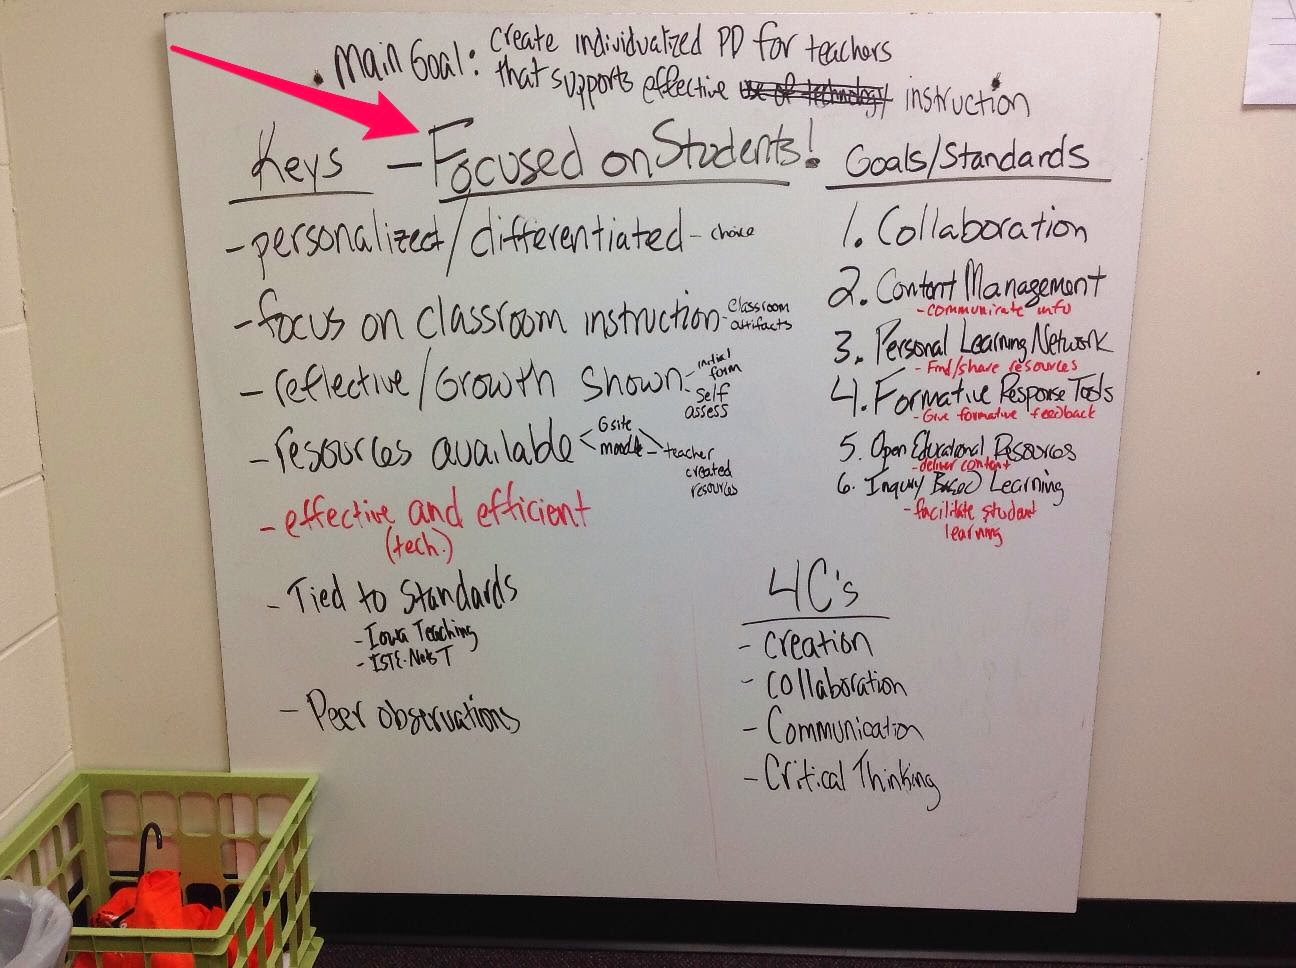 • Main Goal: create individualized PD for teachers
that supports effective use of technology instruction
Keys – Focused on Students!
- personalized/differentiated - choice
- focus on classroom instruction - classroom
artifacts
- reflective/Growth Shown - initial
form
- self
assess
- resources available < Gsite
moodle - teacher
created
resources
- effective and efficient
(tech.)
- Tied to Standards
- Iowa Teaching
- ISTE-Nets T
- Peer observations
Goals/Standards
1. Collaboration
2. Content Management
- communicate info
3. Personal Learning Network
- Find/share resources
4. Formative Response Tools
- Give formative feedback
5. Open Educational Resources
- deliver content
6. Inquiry Based Learning
- facilitate student
learning
4C's
- Creation
- Collaboration
- Communication
- Critical Thinking